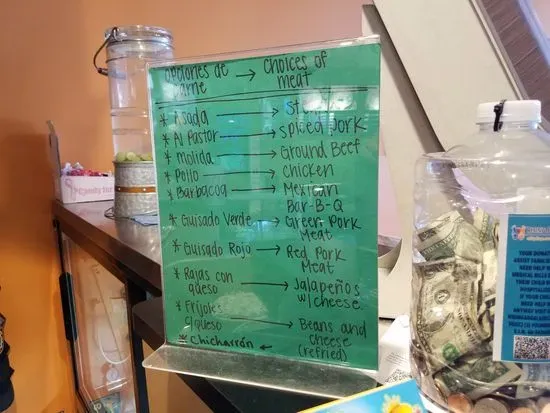 Opciones de carne → Choices of meat
* Asada → St
* Al Pastor → Spiced Pork
* Molida → Ground Beef
* Pollo → Chicken
* Barbacoa → Mexican Bar-B-Q
* Guisado Verde → Green Pork Meat
* Guisado Rojo → Red Pork Meat
* Rajas con queso → Jalapeños w/cheese
* Frijoles c/queso → Beans and cheese (refried)
* Chicharrón ←
Candy for
YOUR DONAT
MEDICAL BILLS
THEIR CHILD
NEED HELP